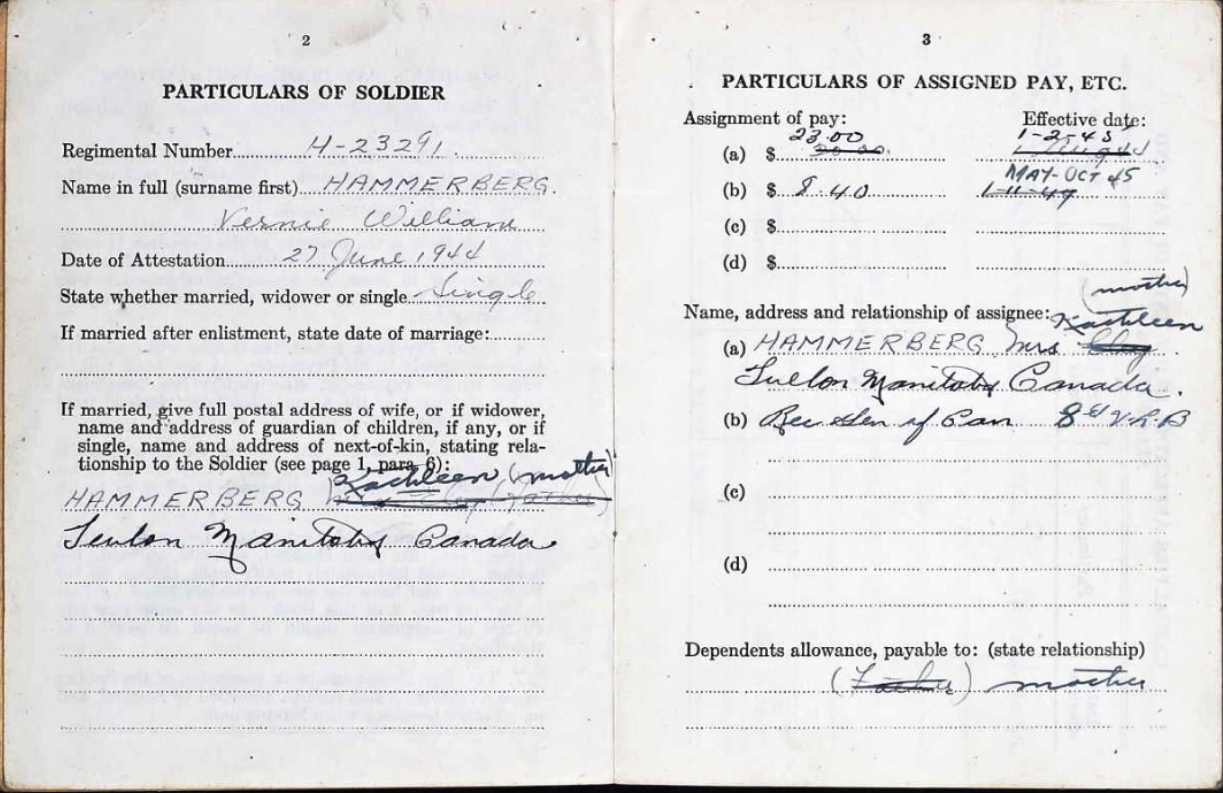 2
PARTICULARS OF SOLDIER
Regimental Number H-23291
Name in full (surname first) HAMMERBERG.
Vernie William
Date of Attestation 27 June 1944
State whether married, widower or single Single
If married after enlistment, state date of marriage:
If married, give full postal address of wife, or if widower,
name and address of guardian of children, if any, or if
single, name and address of next-of-kin, stating rela-
tionship to the Soldier (see page 1, para. 6):
Kathleen (mother)
HAMMERBERG (Father)
Teulon Manitoba Canada
3
PARTICULARS OF ASSIGNED PAY, ETC.
Assignment of pay: Effective date:
23.00 1-2-45
(a) $ 20.00
MAY-OCT 45
(b) $ 8.40
(c) $
(d) $
(mother)
Name, address and relationship of assignee: Kathleen
(a) HAMMERBERG Mrs
Teulon Manitoba Canada.
(b) Rec Gen of Can 8th V.L.B
(c)
(d)
Dependents allowance, payable to: (state relationship)
(Father) mother